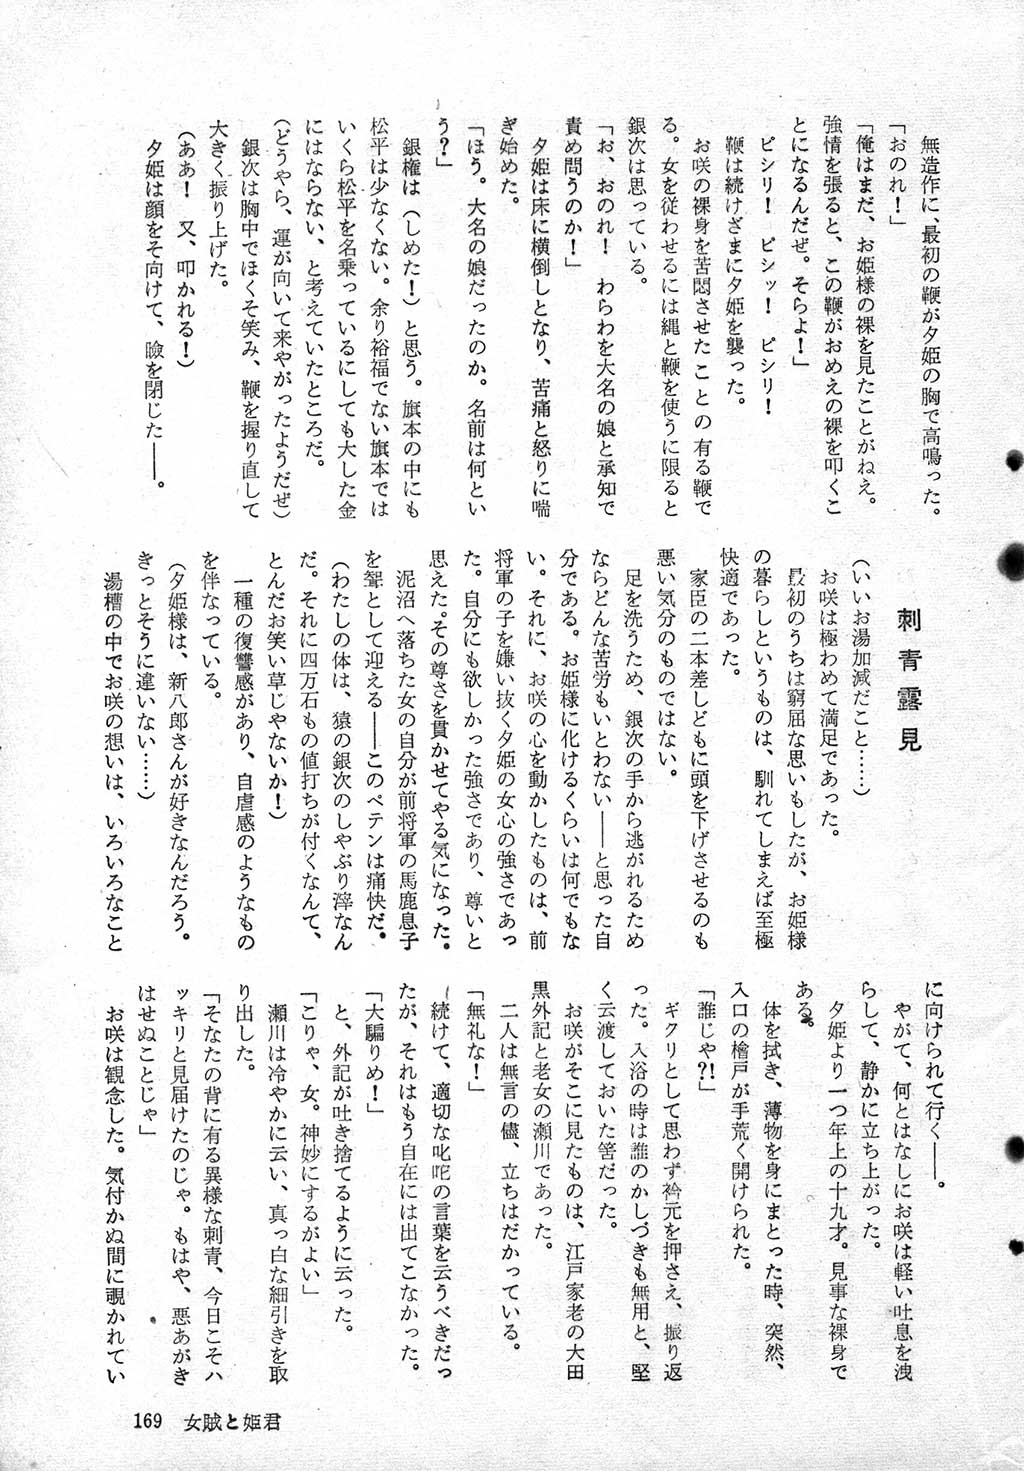 無造作に、最初の鞭が夕姫の胸で高鳴った。
「おのれ！」
「俺はまだ、お姫様の裸を見たことがねえ。
強情を張ると、この鞭がおめえの裸を叩くこ
とになるんだぜ。そらよ！」
ピシリ！　ピシッ！　ピシリ！
鞭は続けざまに夕姫を襲った。
お咲の裸身を苦悶させた ことの 有る鞭で
る。女を従わせるには縄と鞭を使うに限ると
銀次は思っている。
「お、おのれ！　わらわを大名の娘と承知で
責め問うのか！」
夕姫は床に横倒しとなり、苦痛と怒りに喘
ぎ始めた。
「ほう。大名の娘だったのか。名前は何とい
う？」
銀権は（しめた！）と思う。旗本の中にも
松平は少なくない。余り裕福でない旗本では
いくら松平を名乗っているにしても大した金
にはならない、と考えていたところだ。
（どうやら、運が向いて来やがったようだぜ）
銀次は胸中でほくそ笑み、鞭を握り直して
大きく振り上げた。
（ああ！　又、叩かれる！）
夕姫は顔をそ向けて、瞼を閉じた――。
刺青露見
（いいお湯加減だこと……）
お咲は極わめて満足であった。
最初のうちは窮屈な思いもしたが、お姫様
の暮らしというものは、馴れてしまえば至極
快適であった。
家臣の二本差しどもに頭を下げさせるのも
悪い気分のものではない。
足を洗うため、銀次の手から逃がれるため
ならどんな苦労もいとわない――と思った自
分である。お姫様に化けるくらいは何でもな
い。それに、お咲の心を動かしたものは、前
将軍の子を嫌い抜く夕姫の女心の強さであっ
た。自分にも欲しかった強さであり、尊いと
思えた。その尊さを貫かせてやる気になった。
泥沼へ落ちた女の自分が前将軍の馬鹿息子
を聟として迎える――このペテンは痛快だ。
（わたしの体は、猿の銀次のしゃぶり滓なん
だ。それに四万石もの値打ちが付くなんて、
とんだお笑い草じゃないか！）
一種の復讐感があり、自虐感のようなもの
を伴なっている。
（夕姫様は、新八郎さんが好きなんだろう。
きっとそうに違いない……）
湯槽の中でお咲の想いは、いろいろなこと
に向けられて行く――。
やがて、何とはなしにお咲は軽い吐息を洩
らして、静かに立ち上がった。
夕姫より一つ年上の十九才。見事な裸身で
ある。
体を拭き、薄物を身にまとった時、突然、
入口の檜戸が手荒く開けられた。
「誰じゃ?!」
ギクリとして思わず衿元を押さえ、振り返
った。入浴の時は誰のかしづきも無用と、堅
く云渡しておいた筈だった。
お咲がそこに見たものは、江戸家老の大田
黒外記と老女の瀬川であった。
二人は無言の儘、立ちはだかっている。
「無礼な！」
続けて、適切な叱咤の言葉を云うべきだっ
たが、それはもう自在には出てこなかった。
「大騙りめ！」
と、外記が吐き捨てるように云った。
「こりゃ、女。神妙にするがよい」
瀬川は冷やかに云い、真っ白な細引きを取
り出した。
「そなたの背に有る異様な刺青、今日こそハ
ッキリと見届けたのじゃ。もはや、悪あがき
はせぬことじゃ」
お咲は観念した。気付かぬ間に覗かれてい
169　女賊と姫君